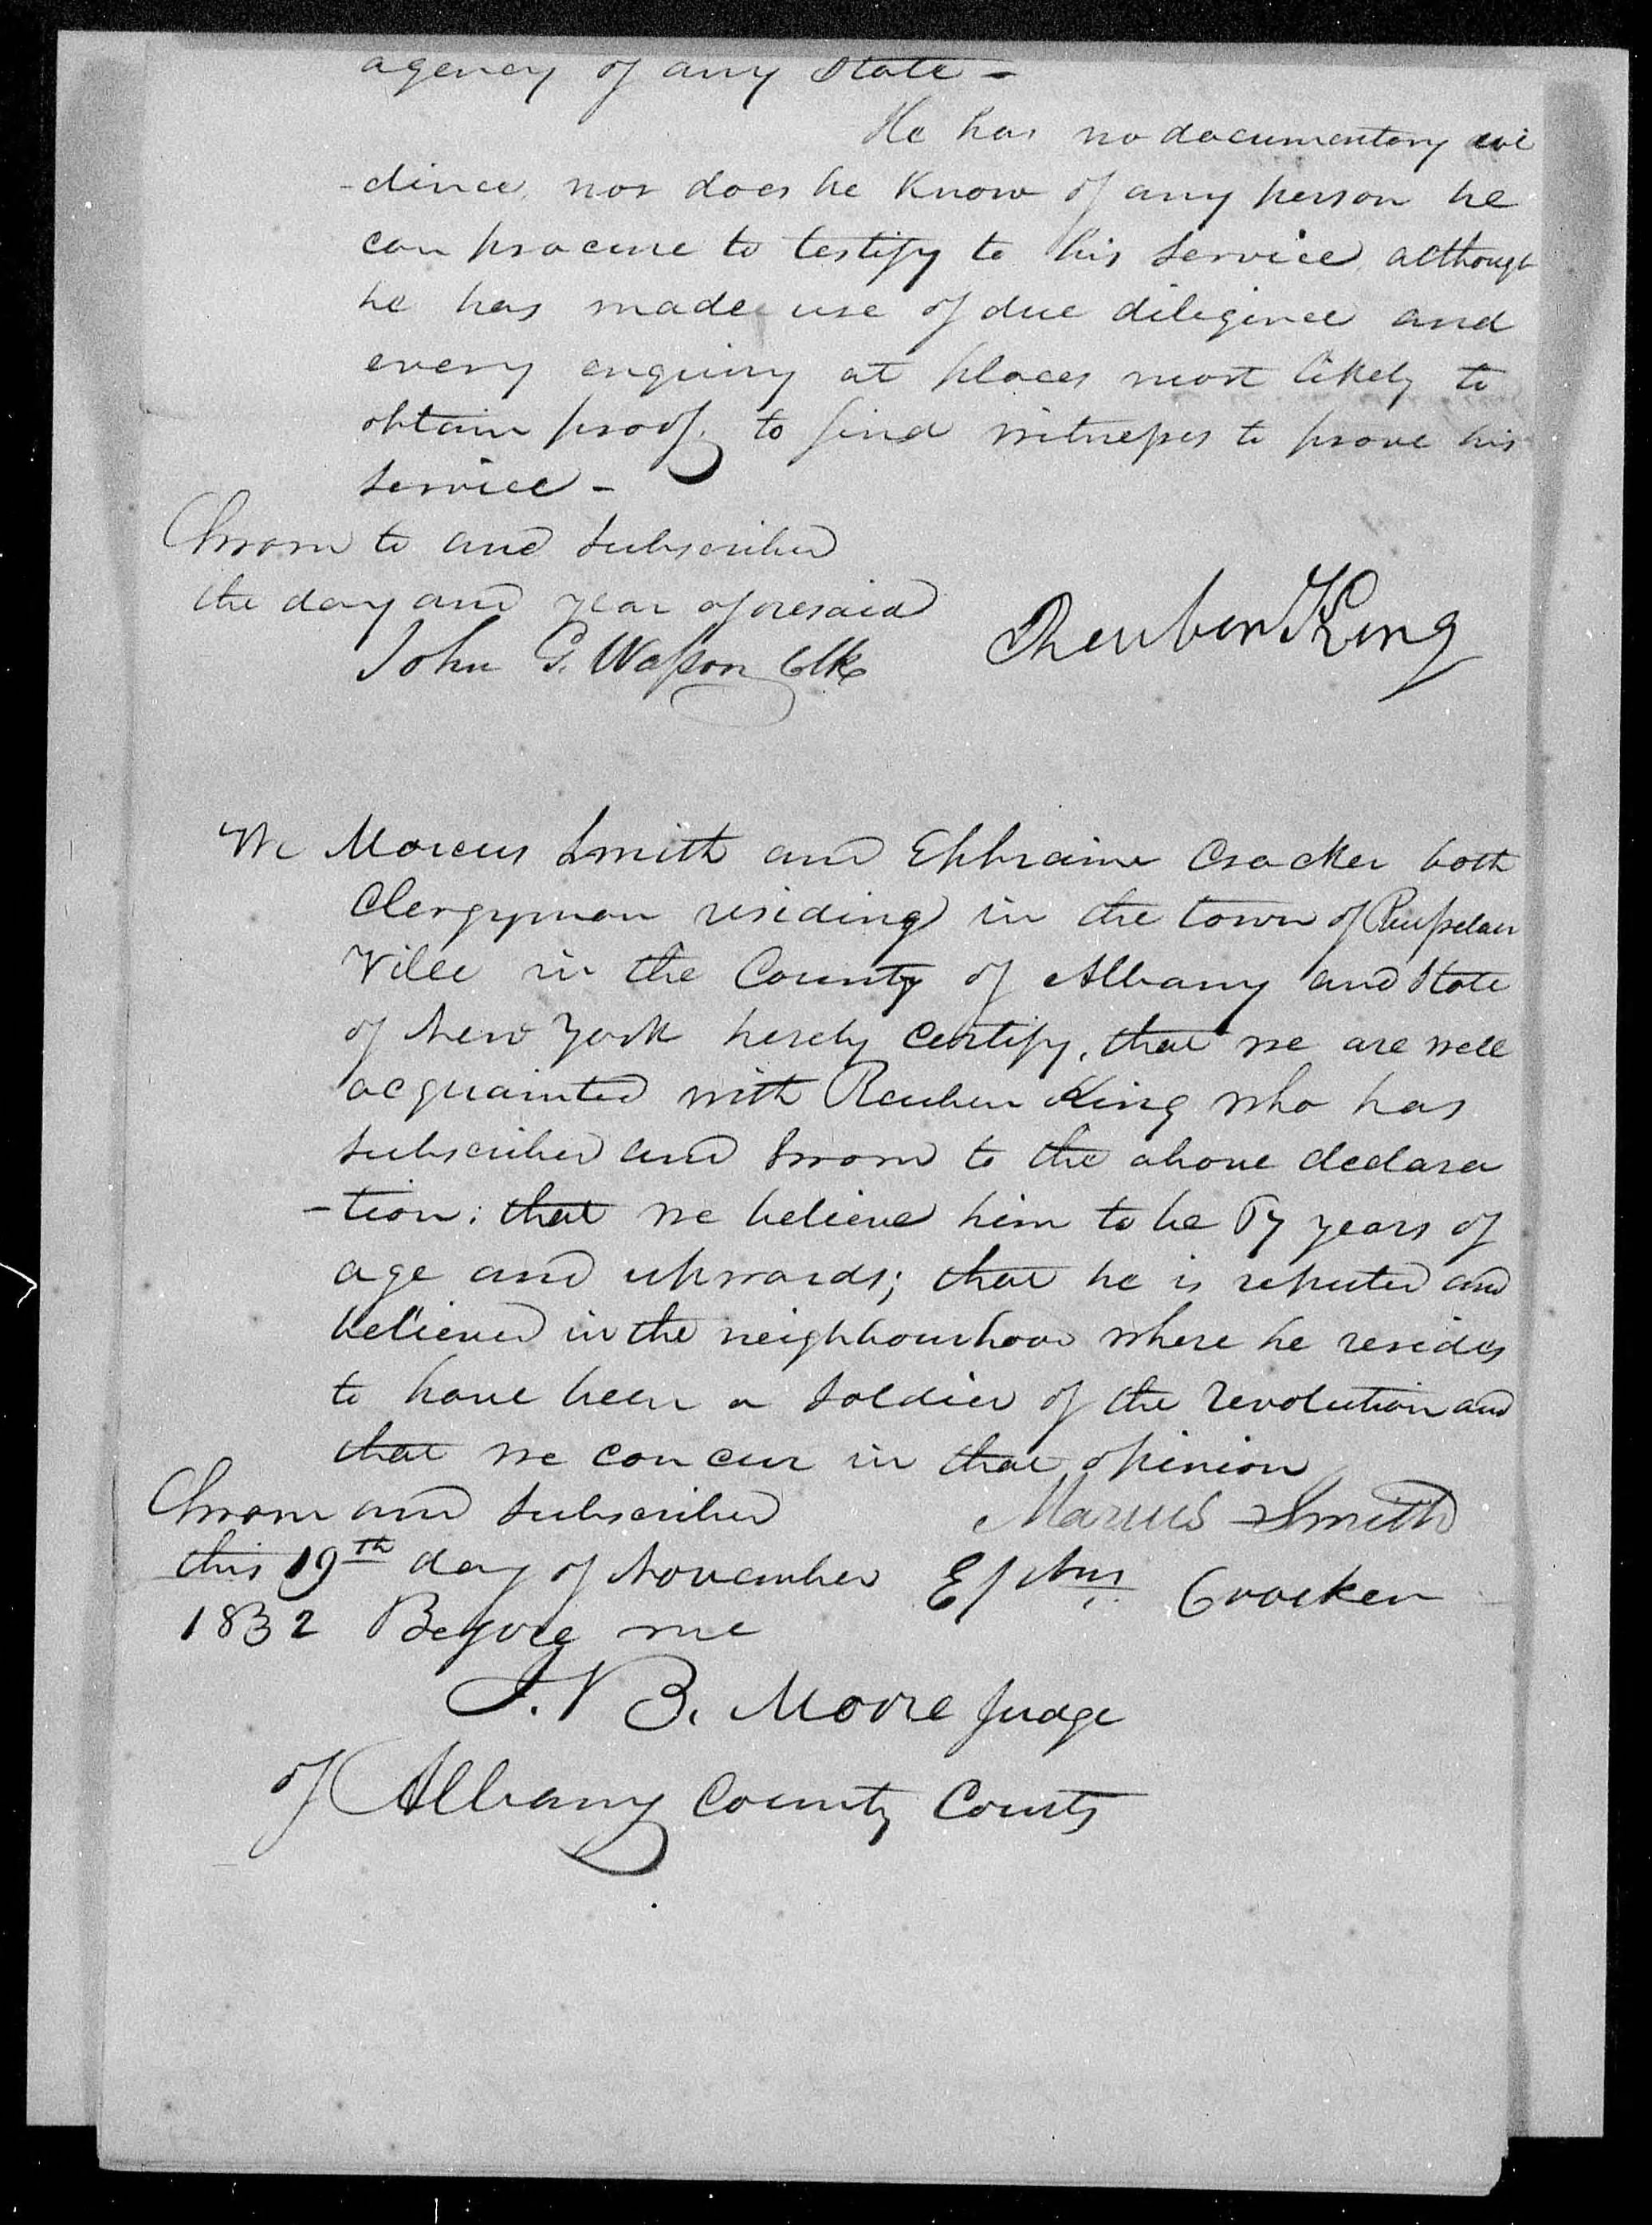 agency of any State -
He has no documentary evi
-dince, nor does he Know of any person he
can procure to testify to his Service, although
he has made use of due diligence and
every enquiry at places most likely to
obtain proof, to find witnesses to prove his
Service -
Sworn to and Subscribed
the day and year aforesaid
John G. Wasson Clk
Reuben King
We Marcus Smith and Ephraim Crocker both
Clergymen residing in the town of Rensselaer
Ville in the County of Albany and State
of New York hereby Certify, that we are well
acquainted with Reuben King who has
Subscribed and Sworn to the above declara
-tion; that we believe him to be 67 years of
age and upwards; that he is reputed and
believed in the neighbourhood where he resides
to have been a Soldier of the revolution and
that we concur in that opinion
Sworn and Subscribed
Marcus Smith
this 19th day of November
Ephm Crocker
1832 Before me
J. V B. Moore Judge
of Albany County Courts